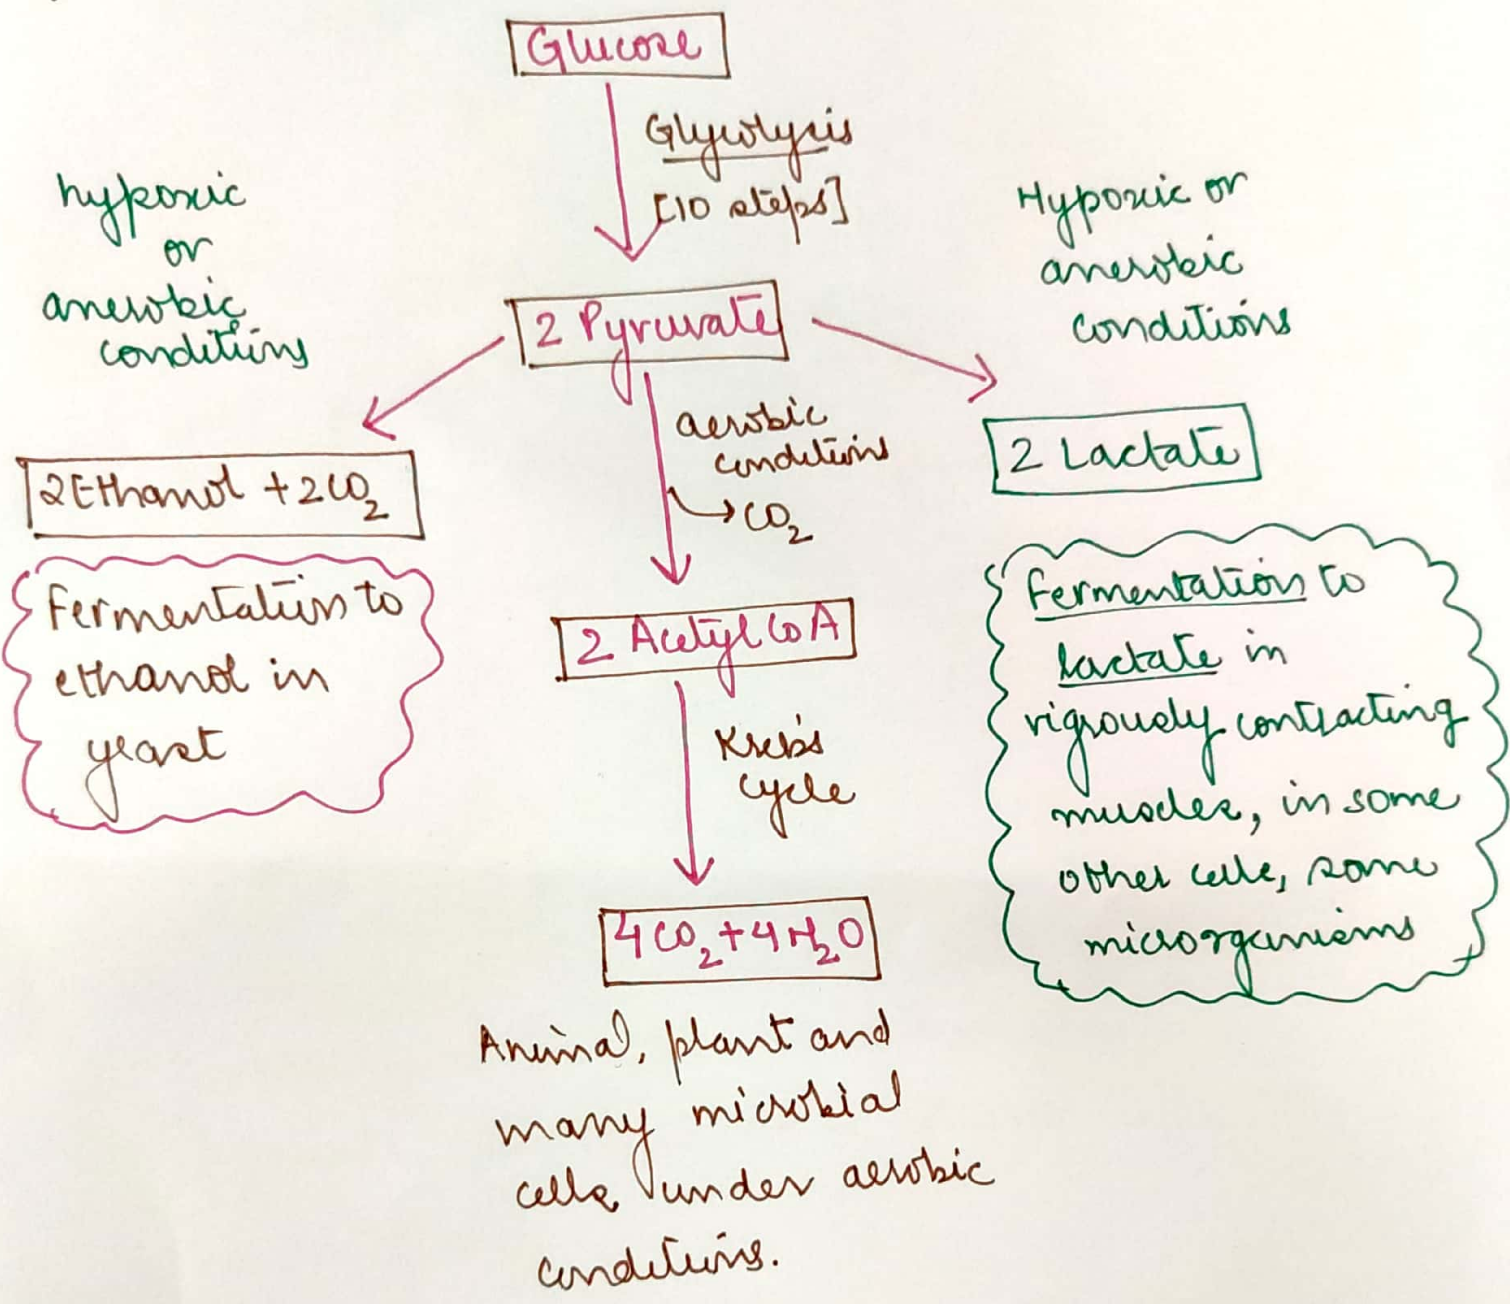 Glucose
Glycolysis
[10 steps]
hypoxic
or
anerobic
conditions
Hypoxic or
anerobic
conditions
2 Pyruvate
aerobic
conditions
CO₂
2 Ethanol + 2CO₂
2 Lactate
Fermentation to
ethanol in
yeast
2 Acetyl CoA
Fermentation to
lactate in
vigrously contracting
muscles, in some
other cells, some
microrganisms
Kreb's
cycle
4CO₂ + 4H₂O
Animal, plant and
many microbial
cells, under aerobic
conditions.